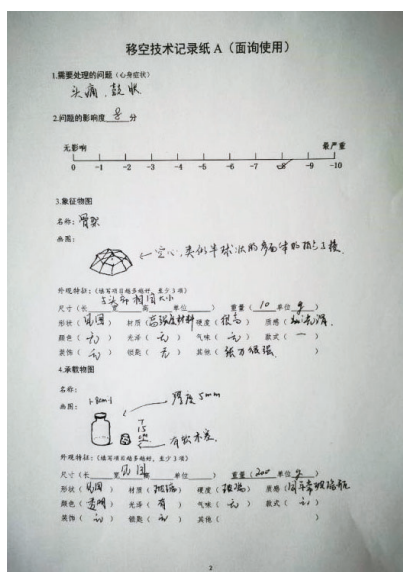 移空技术记录纸 A（面询使用）
1.需要处理的问题（心身症状）
头痛、鼓胀
2.问题的影响度 8 分
无影响 最严重
0 -1 -2 -3 -4 -5 -6 -7 -8 -9 -10
3.象征物图
名称：骨架
画图：
←空心，类似半球状的多面体的
外观特征：（填写项目越多越好，至少3项）
与头部相同大小
尺寸（长 宽 高 单位 ） 重量（10 单位 g ）
形状（见图 ） 材质（高强度材料 硬度（很高 ） 质感（
颜色（无 ） 光泽（无 ） 气味（无 ） 款式（一 ）
装饰（无 ） 锁匙（无 ） 其他（张力很强 ）
4.承载物图
名称：
画图：
厚度5mm
有软木塞
外观特征：（填写项目越多越好，至少3项）
尺寸（长 宽 高 单位 ） 重量（200 单位 g ）
见图
形状（见图 ） 材质（玻璃 ） 硬度（玻璃 ） 质感（
颜色（透明 ） 光泽（有 ） 气味（无 ） 款式（无 ）
装饰（无 ） 锁匙（无 ） 其他（ ）
2